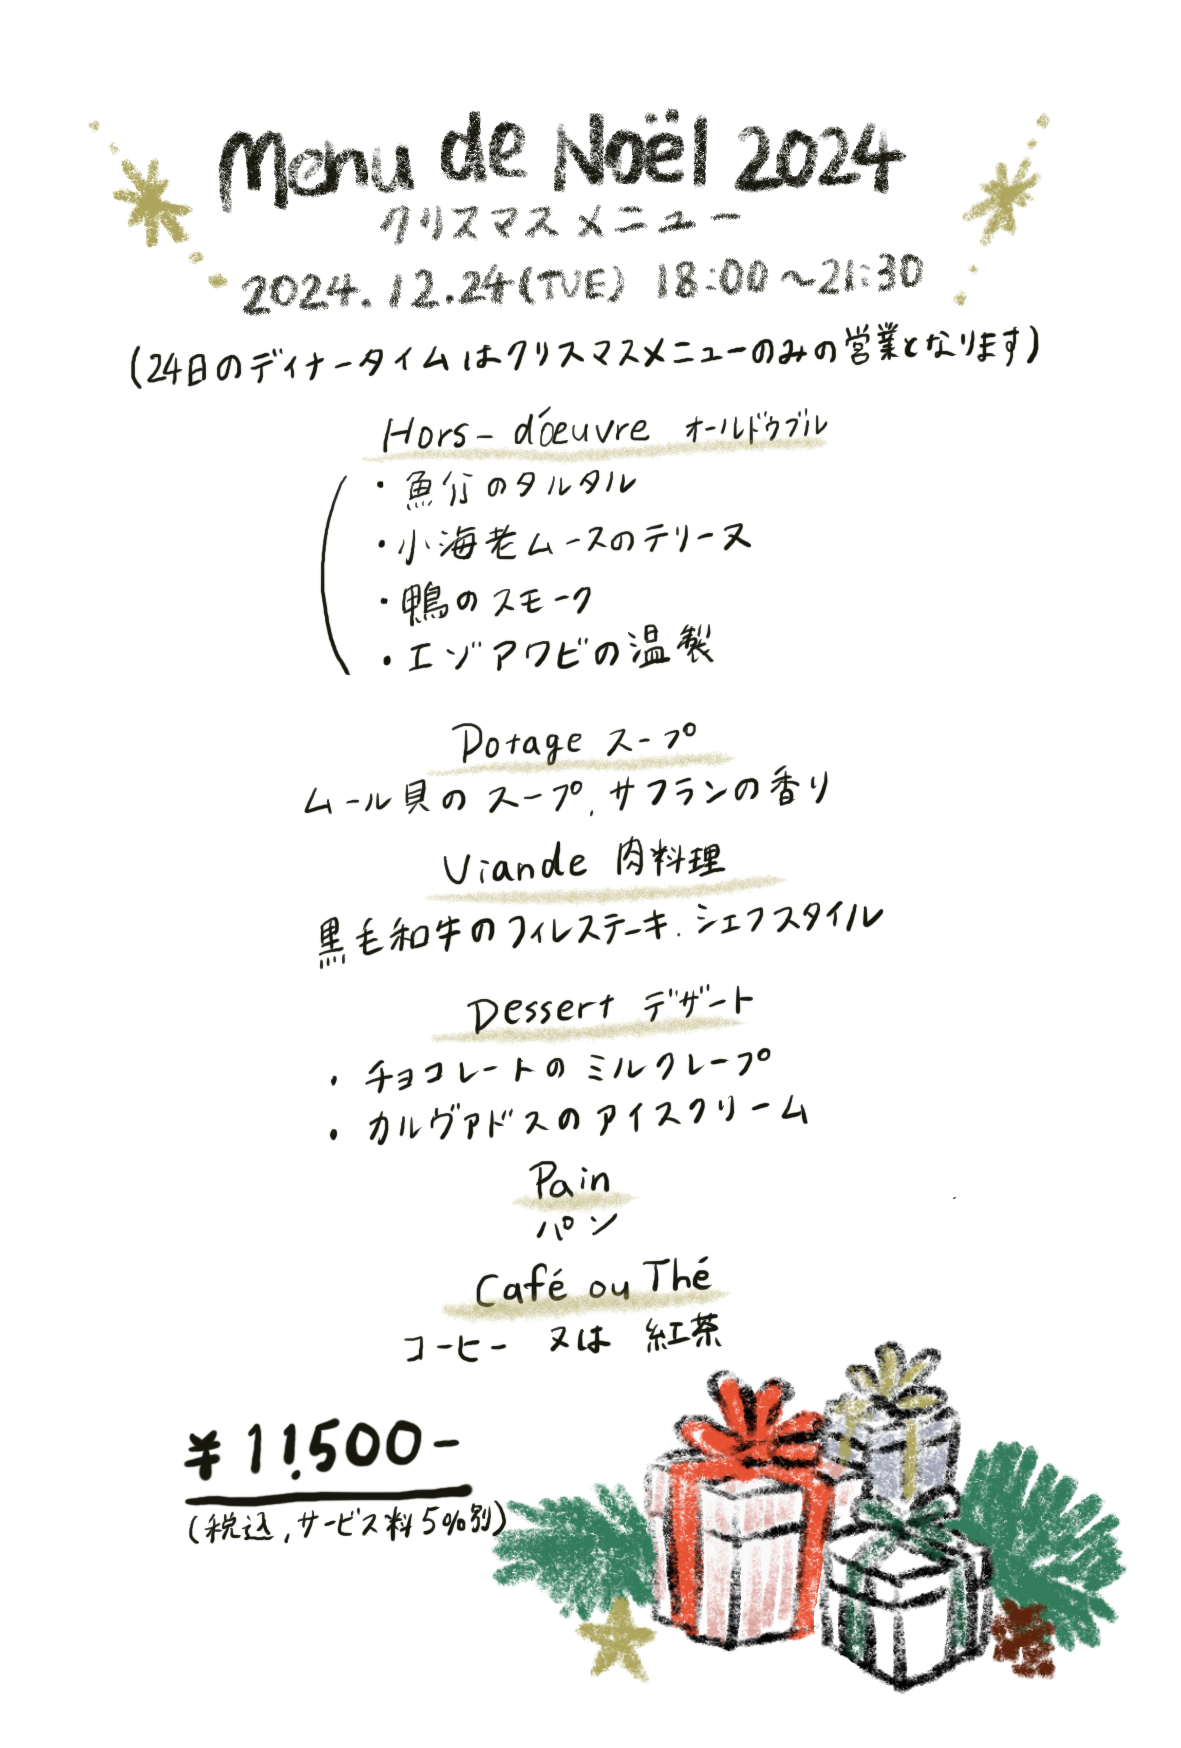 Menu de Noël 2024
クリスマスメニュー
2024.12.24(TUE) 18:00~21:30
(24日のディナータイムはクリスマスメニューのみの営業となります)
Hors-d'œuvre オールドウブル
・魚介のタルタル
・小海老ムースのテリーヌ
・鴨のスモーク
・エゾアワビの温製
Potage スープ
ムール貝のスープ,サフランの香り
Viande 肉料理
黒毛和牛のフィレステーキ.シェフスタイル
Dessert デザート
・チョコレートのミルクレープ
・カルヴァドスのアイスクリーム
Pain
パン
Café ou Thé
コーヒー 又は 紅茶
¥11,500-
(税込,サービス料5%別)